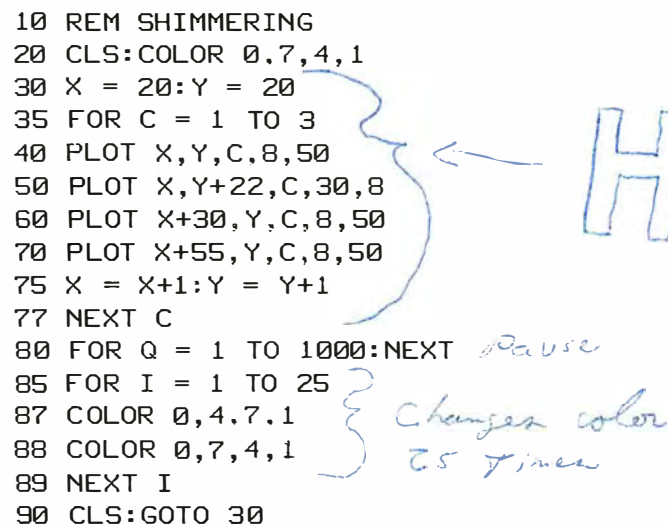 10 REM SHIMMERING
20 CLS:COLOR 0.7,4,1
30 X = 20:Y = 20
35 FOR C = 1 TO 3
40 PLOT X,Y,C,8,50
50 PLOT X,Y+22,C,30,8
60 PLOT X+30,Y,C,8,50
70 PLOT X+55,Y,C,8,50
75 X = X+1:Y = Y+1
77 NEXT C
80 FOR Q = 1 TO 1000:NEXT Pause
85 FOR I = 1 TO 25
87 COLOR 0,4.7.1
88 COLOR 0,7,4,1
89 NEXT I
90 CLS:GOTO 30
H
Changes color
25 Times